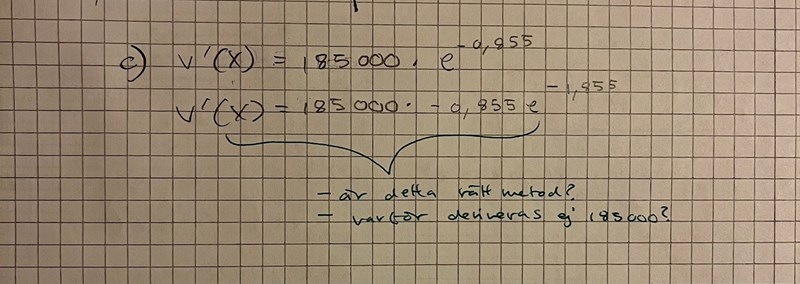 c) v'(x) = 185 000 · e^-0,855
v'(x) = 185 000 · -0,855 e^-1,855
- är detta rätt metod?
- varför deriveras ej 185000?